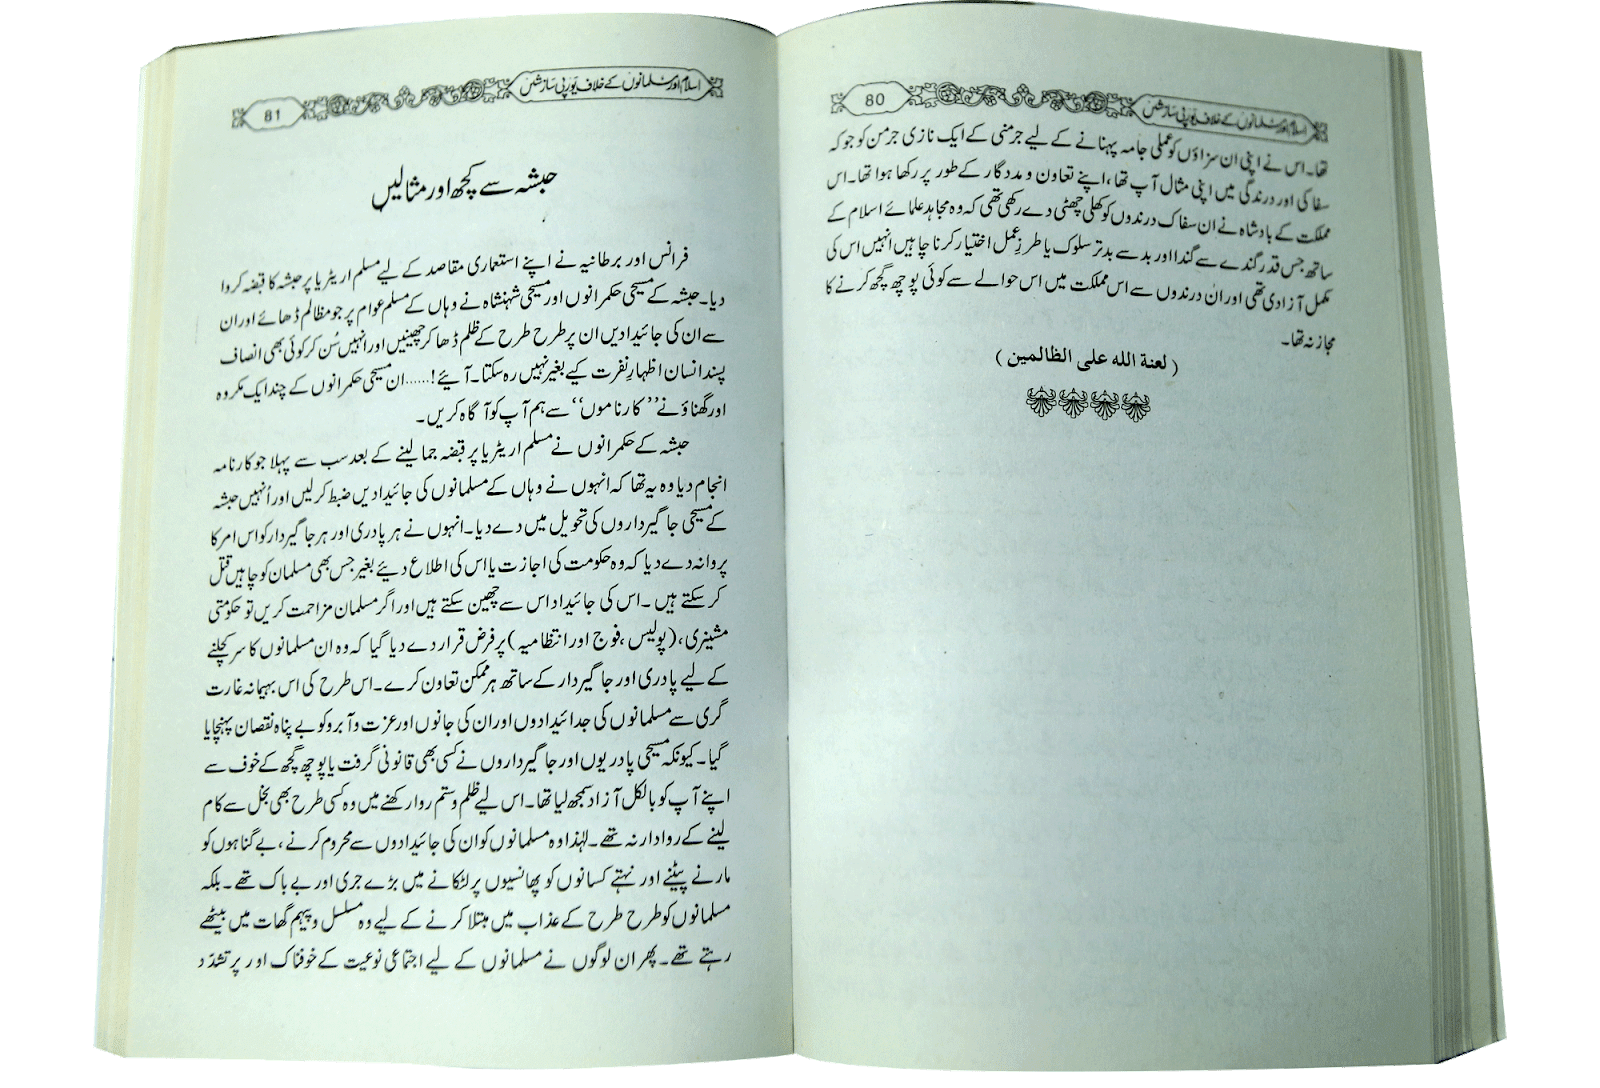 80
اسلام اور مسلمانوں کے خلاف یورپی سازشیں
تھا۔ اس نے اپنی ان سزاؤں کو عملی جامہ پہنانے کے لیے جرمنی کے ایک نازی جرمن کو جو کہ
سفاکی اور درندگی میں اپنی مثال آپ تھا، اپنے تعاون و مددگار کے طور پر رکھا ہوا تھا۔ اس
مملکت کے بادشاہ نے ان سفاک درندوں کو کھلی چھٹی دے رکھی تھی کہ وہ مجاہد علمائے اسلام کے
ساتھ جس قدر گندے سے گندا اور بد سے بدتر سلوک یا طرزِ عمل اختیار کرنا چاہیں انہیں اس کی
مکمل آزادی تھی اور ان درندوں سے اس مملکت میں اس حوالے سے کوئی پوچھ گچھ کرنے کا
مجاز نہ تھا۔
( لعنة الله على الظالمين )
81
اسلام اور مسلمانوں کے خلاف یورپی سازشیں
حبشہ سے کچھ اور مثالیں
فرانس اور برطانیہ نے اپنے استعماری مقاصد کے لیے مسلم اریٹریا پر حبشہ کا قبضہ کروا
دیا۔ حبشہ کے مسیحی حکمرانوں اور مسیحی شہنشاہ نے وہاں کے مسلم عوام پر جو مظالم ڈھائے اور ان
سے ان کی جائیدادیں ان پر طرح طرح کے ظلم ڈھا کر چھینیں اور انہیں سُن کر کوئی بھی انصاف
پسند انسان اظہارِ نفرت کیے بغیر نہیں رہ سکتا۔ آئیے!...... ان مسیحی حکمرانوں کے چند ایک مکروہ
اور گھناؤنے ’’کارناموں‘‘ سے ہم آپ کو آگاہ کریں۔
حبشہ کے حکمرانوں نے مسلم اریٹریا پر قبضہ جما لینے کے بعد سب سے پہلا جو کارنامہ
انجام دیا وہ یہ تھا کہ انہوں نے وہاں کے مسلمانوں کی جائیدادیں ضبط کر لیں اور اُنہیں حبشہ
کے مسیحی جاگیرداروں کی تحویل میں دے دیا۔ انہوں نے ہر پادری اور ہر جاگیردار کو اس امر کا
پروانہ دے دیا کہ وہ حکومت کی اجازت یا اس کی اطلاع دیئے بغیر جس بھی مسلمان کو چاہیں قتل
کر سکتے ہیں۔ اس کی جائیداد اس سے چھین سکتے ہیں اور اگر مسلمان مزاحمت کریں تو حکومتی
مشینری، (پولیس، فوج اور انتظامیہ) پر فرض قرار دے دیا گیا کہ وہ ان مسلمانوں کا سر کچلنے
کے لیے پادری اور جاگیردار کے ساتھ ہر ممکن تعاون کرے۔ اس طرح کی اس بہیمانہ غارت
گری سے مسلمانوں کی جدائیدادوں اور ان کی جانوں اور عزت و آبرو کو بے پناہ نقصان پہنچایا
گیا۔ کیونکہ مسیحی پادریوں اور جاگیرداروں نے کسی بھی قانونی گرفت یا پوچھ گچھ کے خوف سے
اپنے آپ کو بالکل آزاد سمجھ لیا تھا۔ اس لیے ظلم و ستم روا رکھنے میں وہ کسی طرح بھی بخل سے کام
لینے کے روادار نہ تھے۔ لہٰذا وہ مسلمانوں کو ان کی جائیدادوں سے محروم کرنے، بے گناہوں کو
مارنے پیٹنے اور نہتے کسانوں کو پھانسیوں پر لٹکانے میں بڑے جری اور بے باک تھے۔ بلکہ
مسلمانوں کو طرح طرح کے عذاب میں مبتلا کرنے کے لیے وہ مسلسل و پیہم گھات میں بیٹھے
رہتے تھے۔ پھر ان لوگوں نے مسلمانوں کے لیے اجتماعی نوعیت کے خوفناک اور پر تشدّد